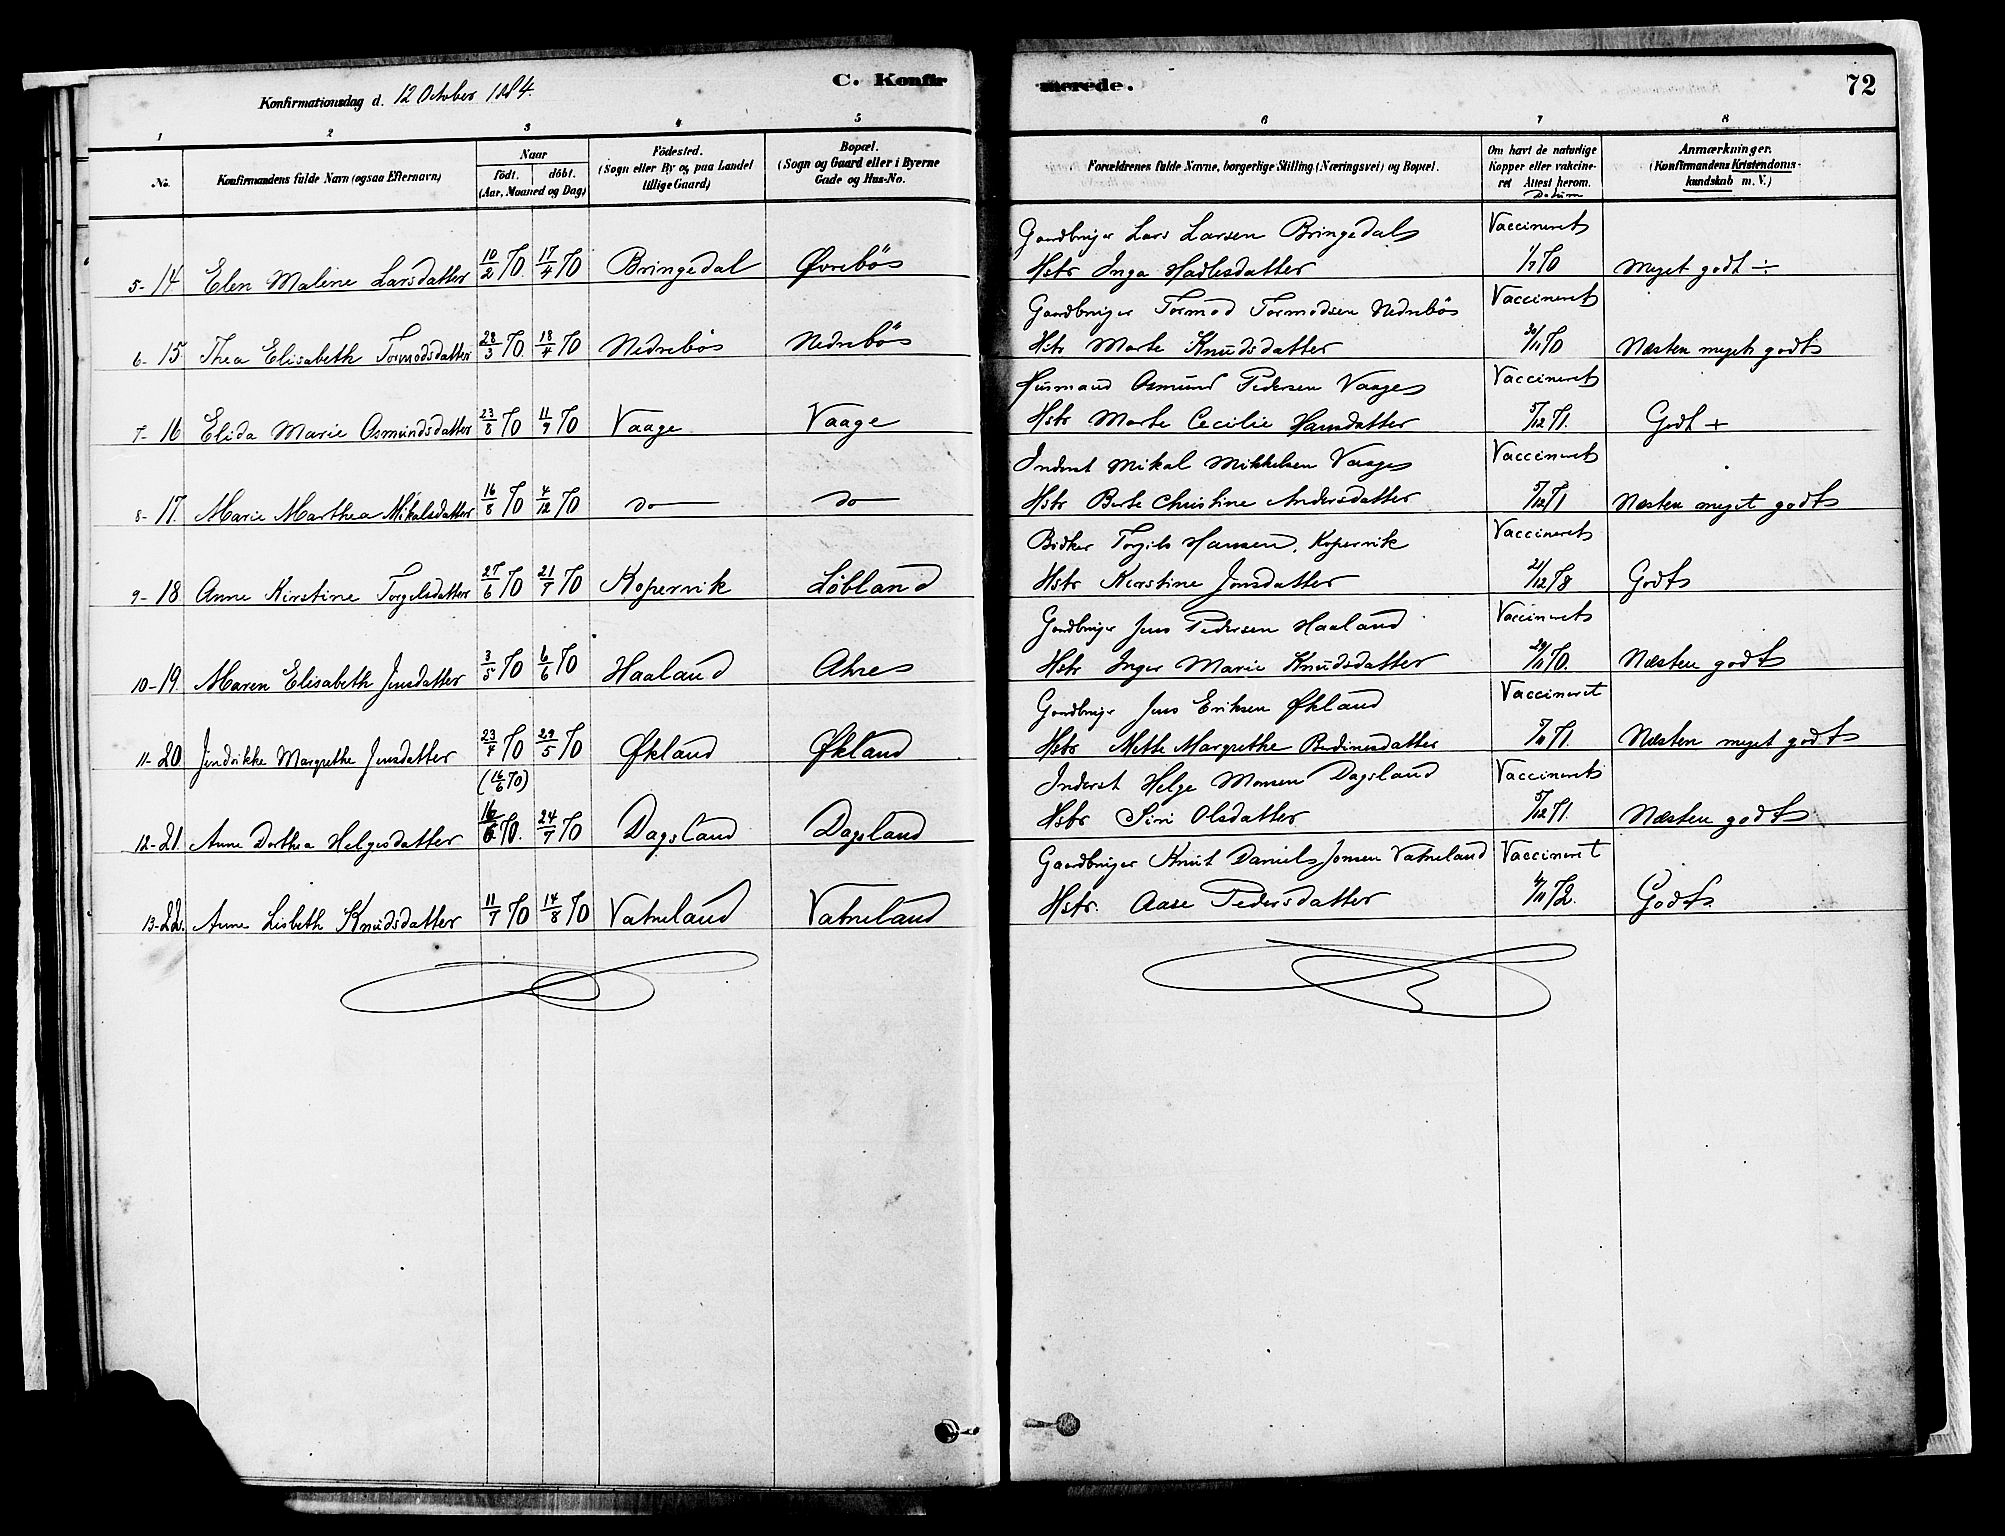 Konfirmationsdag d. 12 October 1884.
C. Konfirmerede.
72
1 2 3 4 5 6 7 8
No. Konfirmandens fulde Navn (ogsaa Efternavn) Naar født. døbt. (Aar, Maaned og Dag) Fødested. (Sogn eller By og, paa Landet tillige Gaard) Bopæl. (Sogn og Gaard eller i Byerne Gade og Hus-No. Forældrenes fulde Navne, borgerlige Stilling (Næringsvei) og Bopæl. Om havt de naturlige Kopper eller vakcineret Attest herom. Datum Anmærkninger. (Konfirmandens Kristendomskundskab m. V.)
Gaardbruger Lars Larsen Bringedal Vaccineret
5-14 Elen Maline Larsdatter 10/2 70 17/4 70 Bringedal Øvrebö Hstr Inga Hadlesdatter 1/7 70 Meget godt ÷
Gaardbruger Tormod Tormodsen Nedrebö Vaccineret
6-15 Thea Elisabeth Tormodsdatter 28/3 70 18/4 70 Nedrebö Nedrebö Hstr Marte Knudsdatter 30/11 70 Næsten meget godt
Husmand Osmund Pedersen Vaage Vaccineret
7-16 Elida Marie Osmundsdatter 23/8 70 11/9 70 Vaage Vaage Hstr Marte Cecilie Hansdatter 5/12 71. Godt +
Inderst Mikal Mikkelsen Vaage Vaccineret
8-17. Marie Marthea Mikalsdatter 16/8 70 4/12 70 do do Hstr Berte Christine Andersdatter 5/12 71 Næsten meget godt
Bødker Torgils Hansen, Kopervik Vaccineret
9-18 Anne Kirstine Torgelsdatter 27/6 70 21/7 70 Kopervik Löbland Hstr Kirstine Jonsdatter 21/12 78 Godt
Gardbruger Jens Pedersen Haaland Vaccineret
10-19 Maren Elisabeth Jensdatter 3/5 70 6/6 70 Haaland Ahre Hstr Inger Marie Knudsdatter 29/11 70. Næsten godt
Gardbruger Jens Eriksen Økland Vaccineret
11-20 Jendrikke Margrethe Jensdatter 23/4 70 29/5 70 Økland Økland Hstr Mette Margrethe Berdinesdatter 5/11 71. Næsten meget godt
(16/6 70) Inderst Helge Monsen Dagsland Vaccineret
12-21. Anne Dorthea Helgesdatter 16/6 70. 24/7 70 Dagsland Dagsland Hstr Siri Olsdatter 5/12 71. Næsten godt
Gaardbruger Knut Daniel Jonsen Vatneland Vaccineret
13-22. Anne Lisbeth Knudsdatter 11/7 70 14/8 70 Vatneland Vatneland Hstr. Aase Pedersdatter /11 72. Godt